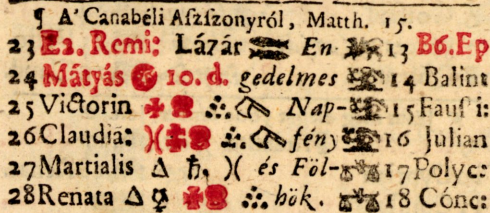 ¶ A' Canabéli Aſzſzonyról, Matth. 15.
23 E2. Remi: Lázár En- 13 B6. Ep
24 Mátyás 10. d. gedelmes 14 Balint
25 Victorin Nap- 15 Fauſti:
26 Claudiā: fény 16 Julian
27 Martialis △ ♄, és Föl- 17 Polyc:
28 Renata △ ☿ hök. 18 Cónc: